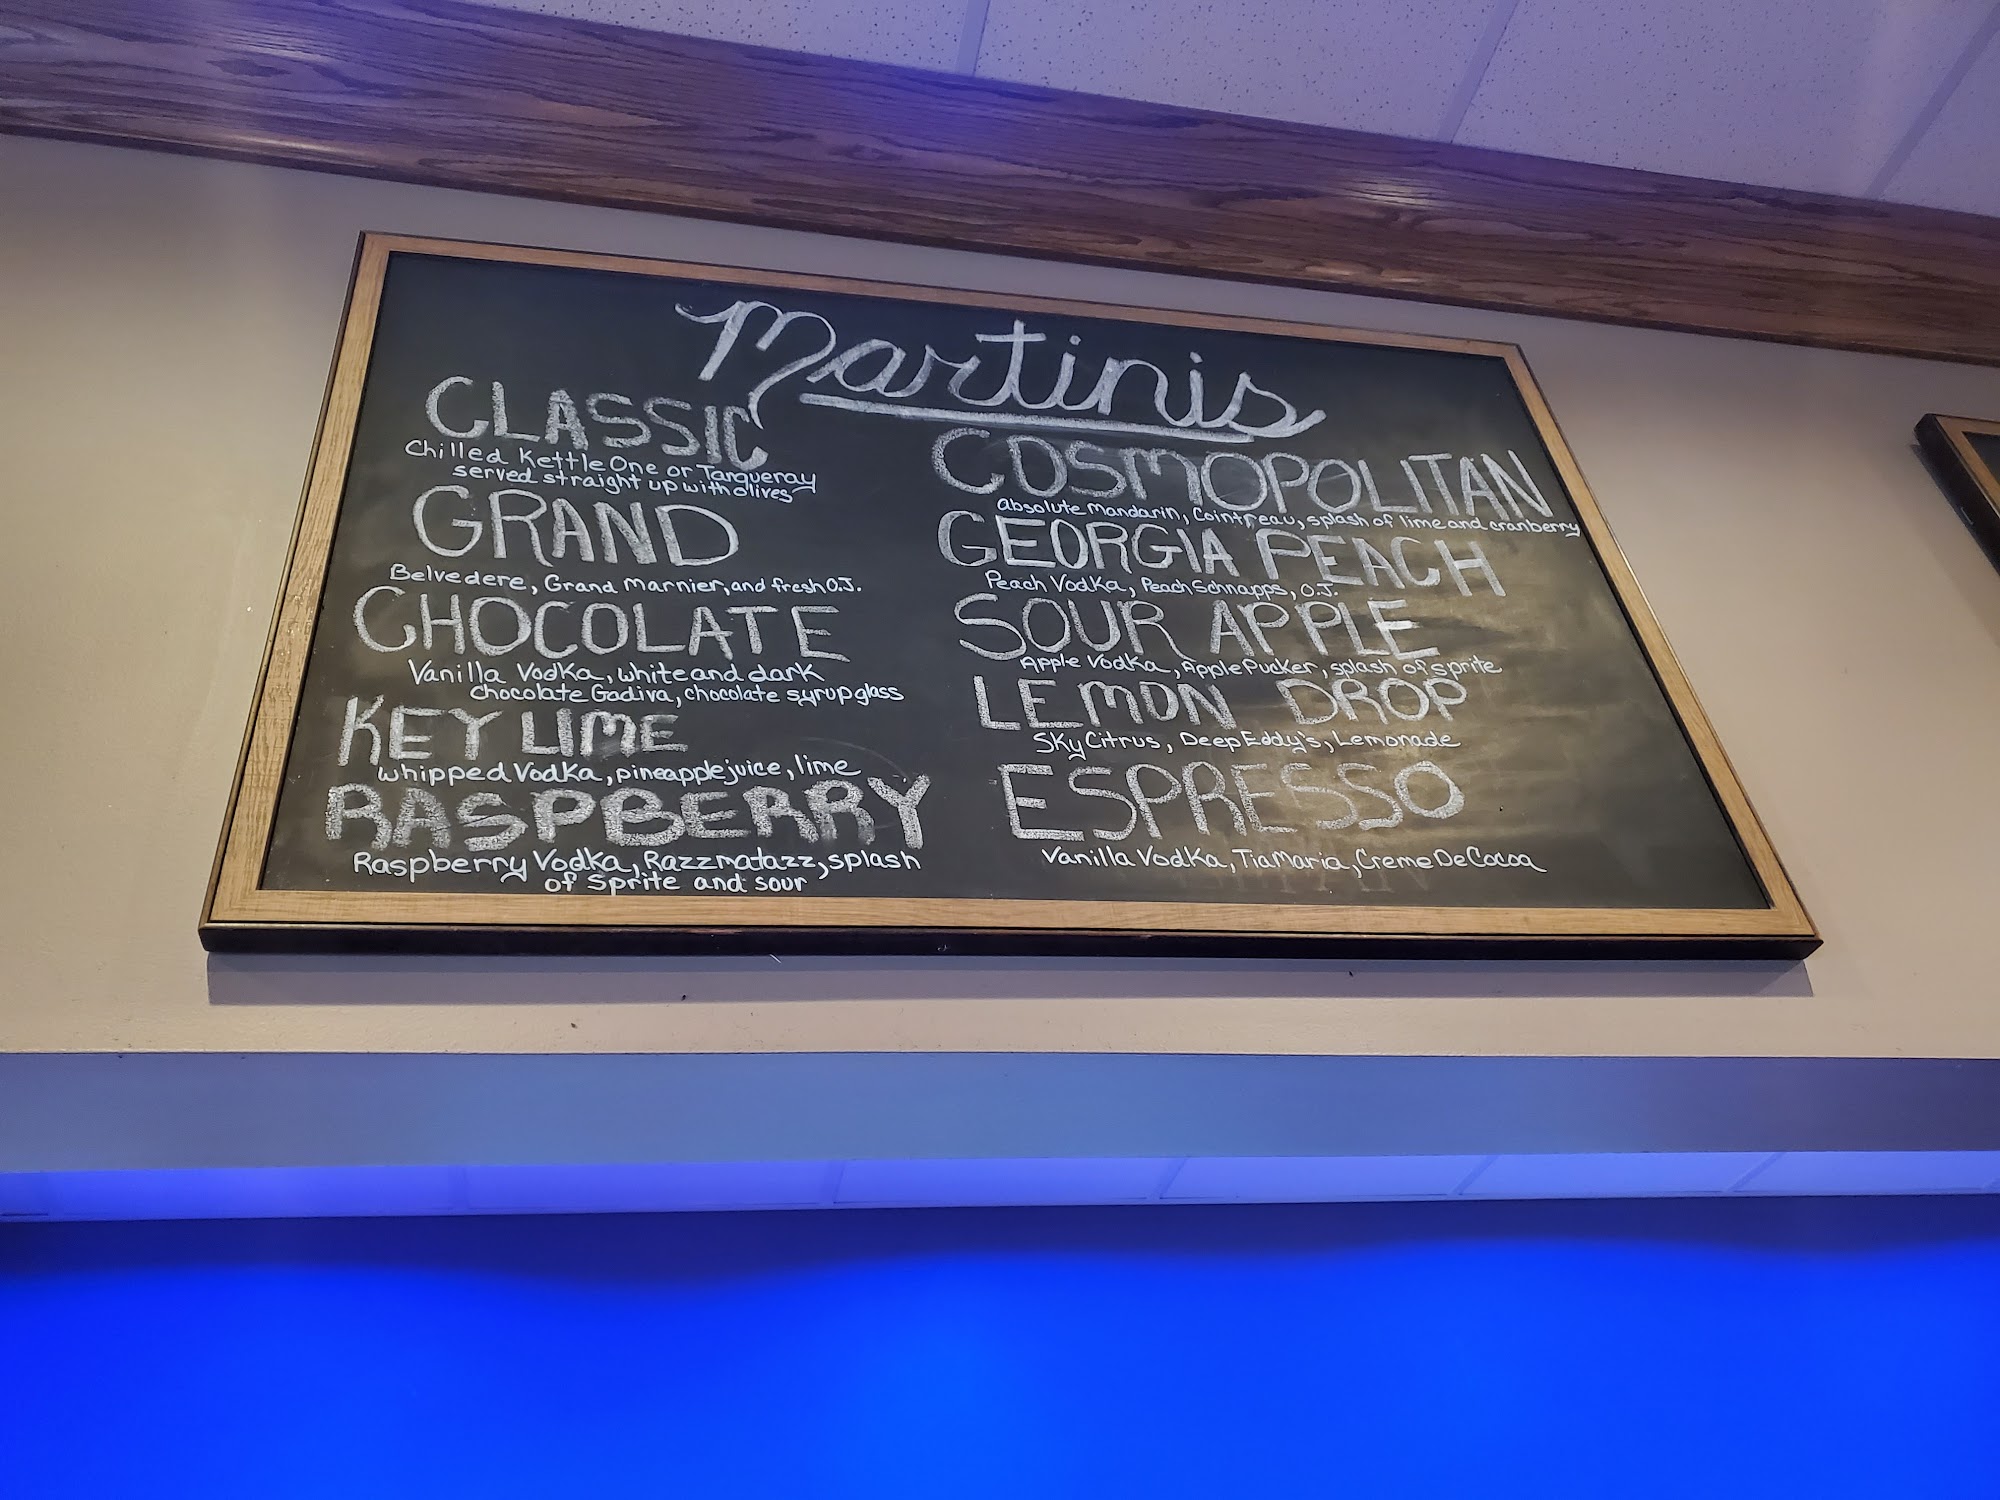 Martinis
CLASSIC
Chilled Kettle One or Tanqueray
served straight up with olives
GRAND
Belvedere, Grand Marnier, and fresh O.J.
CHOCOLATE
Vanilla Vodka, white and dark
chocolate Gadiva, chocolate syrup glass
KEY LIME
whipped Vodka, pineapple juice, lime
RASPBERRY
Raspberry Vodka, Razzmatazz, splash
of Sprite and sour
COSMOPOLITAN
Absolute Mandarin, Cointreau, splash of lime and cranberry
GEORGIA PEACH
Peach Vodka, Peach Schnapps, O.J.
SOUR APPLE
Apple Vodka, Apple Pucker, splash of sprite
LEMON DROP
Sky Citrus, Deep Eddy's, Lemonade
ESPRESSO
Vanilla Vodka, Tia Maria, Creme De Cocoa